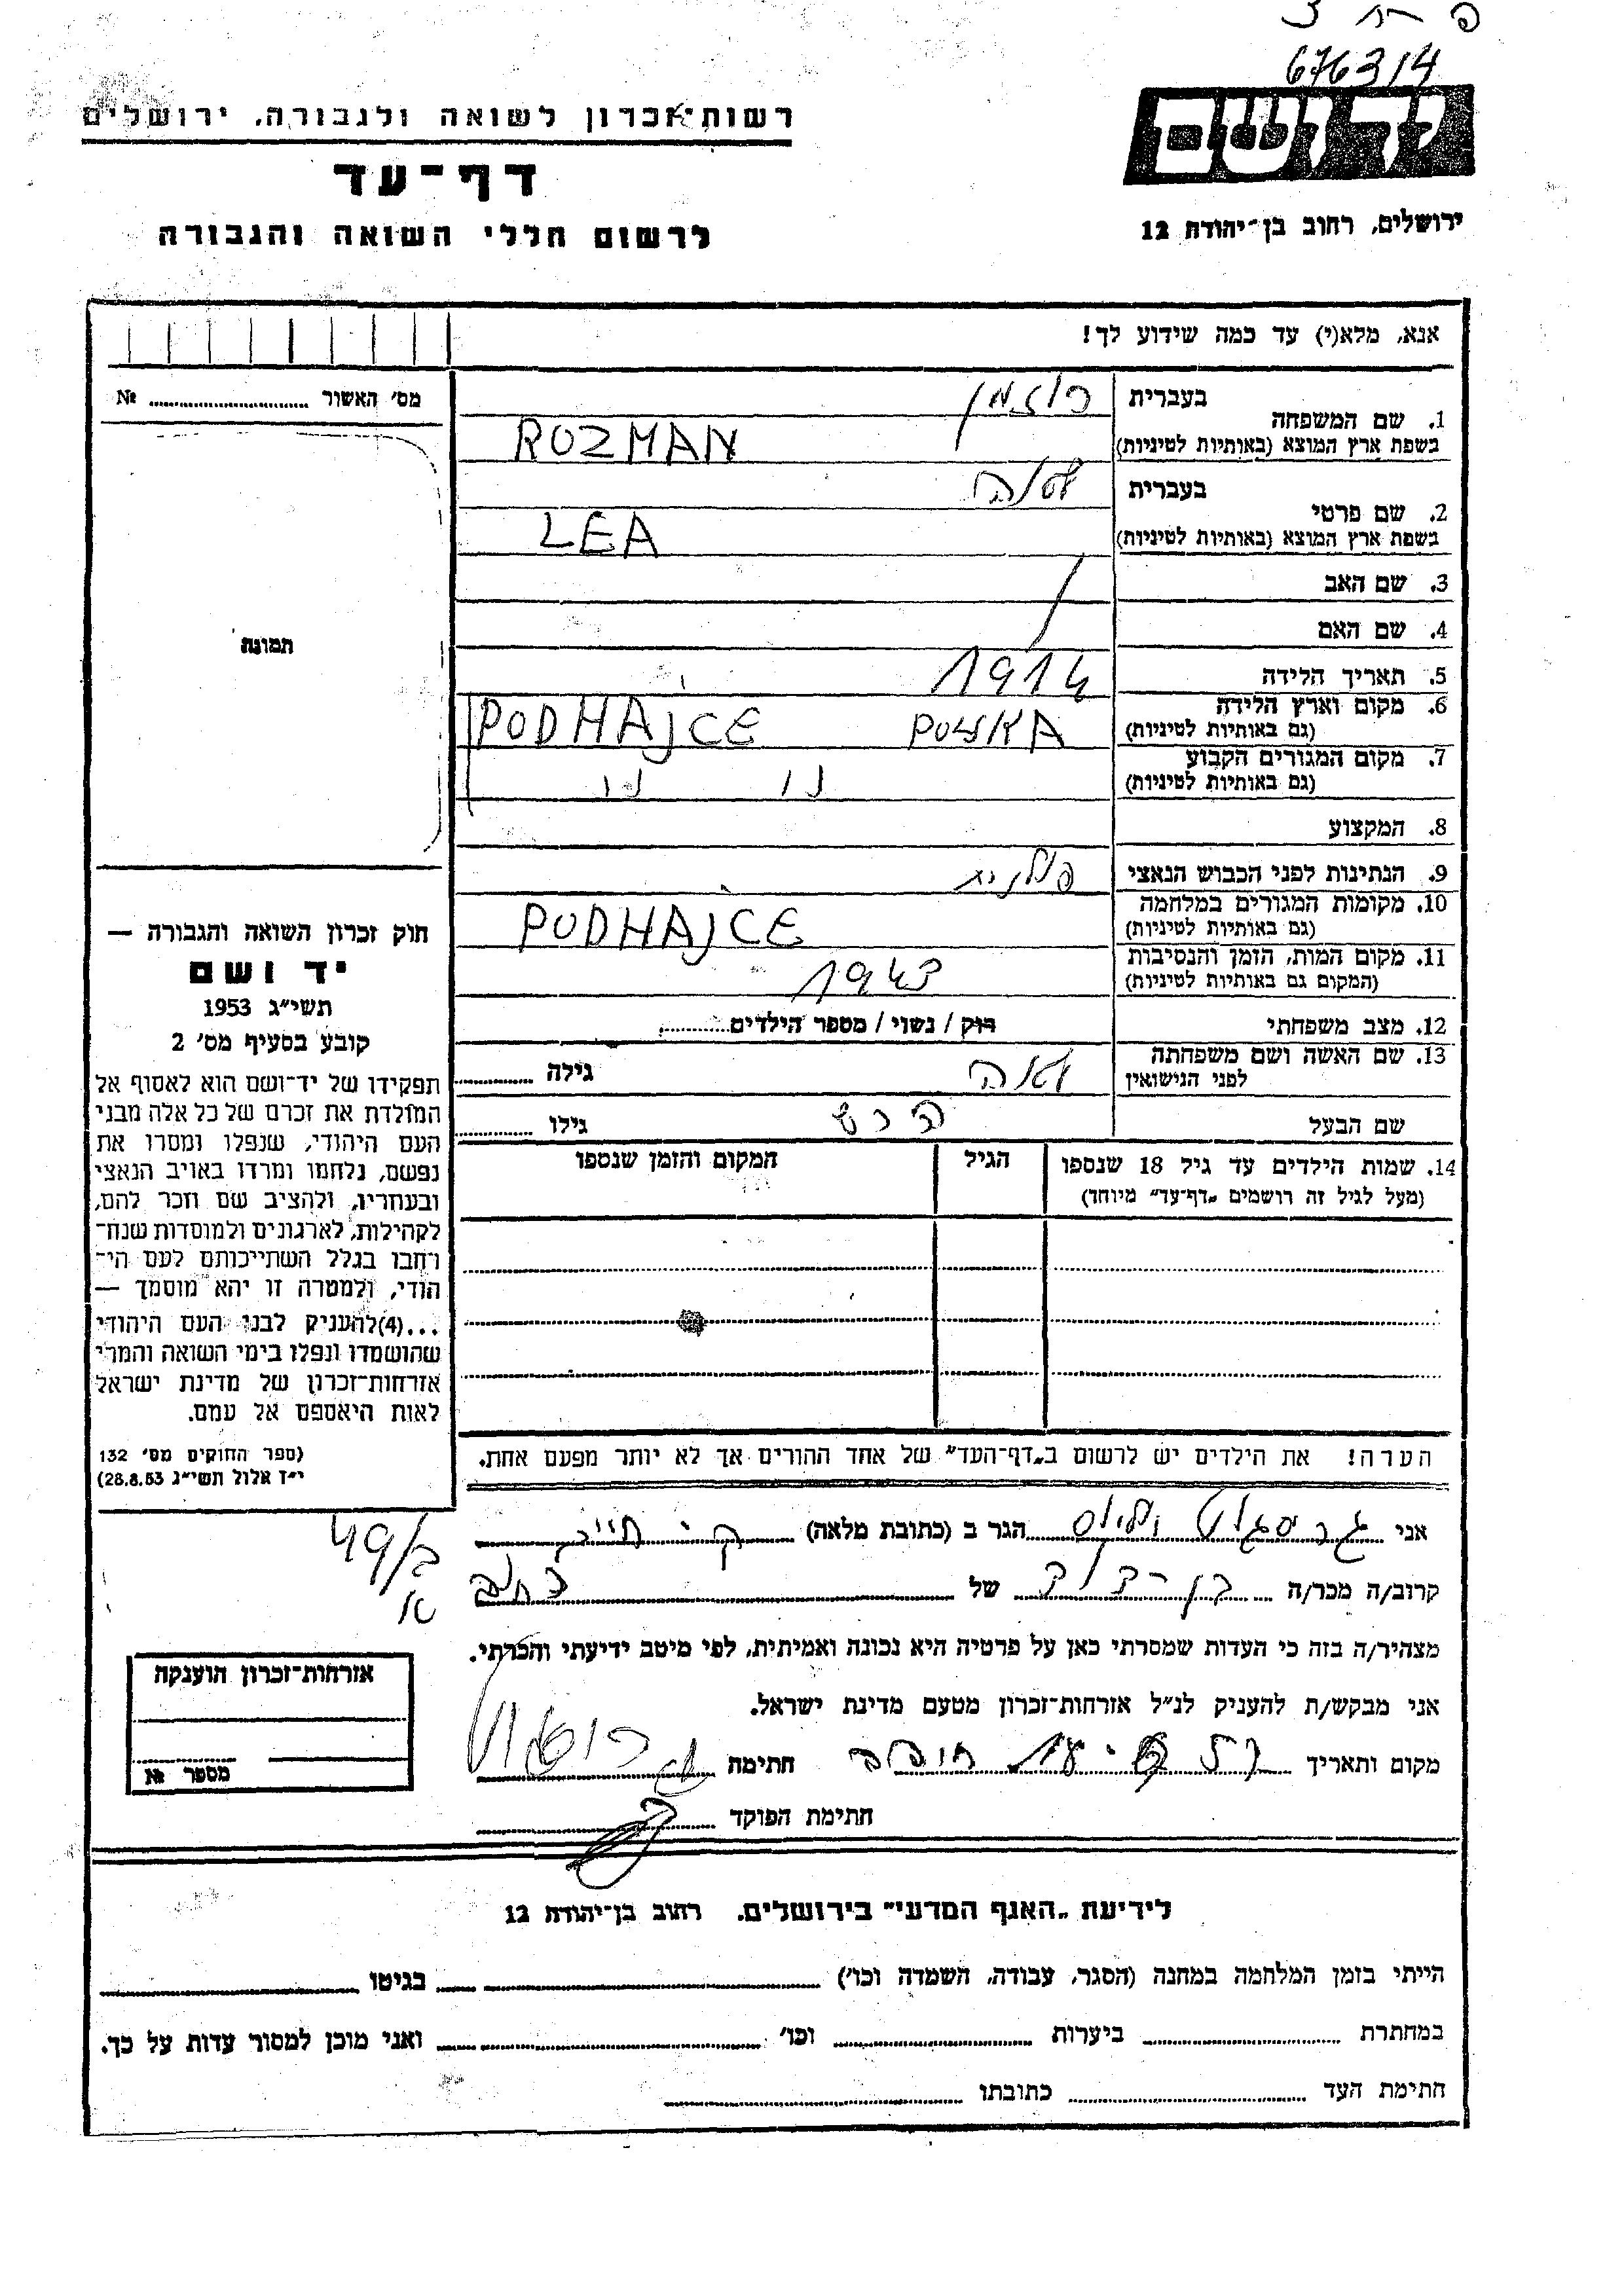 676314
יד ושם
רשות־זכרון לשואה ולגבורה, ירושלים
דף־עד
ירושלים, רחוב בן־יהודה 12
לרשום חללי השואה והגבורה
אנא, מלא(י) עד כמה שידוע לך!
מס׳ האשור №
1. שם המשפחה
בעברית רוזמן
בשפת ארץ המוצא (באותיות לטיניות) ROZMAN
2. שם פרטי
בעברית לאה
בשפת ארץ המוצא (באותיות לטיניות) LEA
3. שם האב
4. שם האם
5. תאריך הלידה 1914
6. מקום וארץ הלידה PODHAJCE POLSKA
(גם באותיות לטיניות)
7. מקום המגורים הקבוע
(גם באותיות לטיניות)
8. המקצוע
9. הנתינות לפני הכבוש הנאצי פולנית
10. מקומות המגורים במלחמה PODHAJCE
(גם באותיות לטיניות)
11. מקום המות, הזמן והנסיבות 1943
(המקום גם באותיות לטיניות)
12. מצב משפחתי רוק / נשוי / מספר הילדים
13. שם האשה ושם משפחתה
לפני הנישואין לאה גילה
שם הבעל הרש גילו
14. שמות הילדים עד גיל 18 שנספו הגיל המקום והזמן שנספו
(מעל לגיל זה רושמים „דף־עד״ מיוחד)
הערה! את הילדים יש לרשום ב„דף־העד״ של אחד ההורים אך לא יותר מפעם אחת.
תמונה
חוק זכרון השואה והגבורה —
יד ושם
תשי״ג 1953
קובע בסעיף מס׳ 2
תפקידו של יד־ושם הוא לאסוף אל
המולדת את זכרם של כל אלה מבני
העם היהודי, שנפלו ומסרו את
נפשם, נלחמו ומרדו באויב הנאצי
ובעוזריו, ולהציב שם וזכר להם,
לקהילות, לארגונים ולמוסדות שנח־
רבו בגלל השתייכותם לעם הי־
הודי, ולמטרה זו יהא מוסמך —
...(4)להעניק לבני העם היהודי
שהושמדו ונפלו בימי השואה והמרי
אזרחות־זכרון של מדינת ישראל
לאות היאספם אל עמם.
(ספר החוקים מס׳ 132
י״ז אלול תשי״ג 28.8.53)
אני הגר ב (כתובת מלאה)
קרוב/ה מכר/ה בן דוד של
מצהיר/ה בזה כי העדות שמסרתי כאן על פרטיה היא נכונה ואמיתית, לפי מיטב ידיעתי והכרתי.
אני מבקש/ת להעניק לנ״ל אזרחות־זכרון מטעם מדינת ישראל.
מקום ותאריך חתימה
חתימת הפוקד
אזרחות־זכרון הוענקה
מספר №
לידיעת „האגף המדעי״ בירושלים, רחוב בן־יהודה 12
הייתי בזמן המלחמה במחנה (הסגר, עבודה, השמדה וכו׳) בגיטו
במחתרת ביערות וכו׳ ואני מוכן למסור עדות על כך.
חתימת העד כתובתו